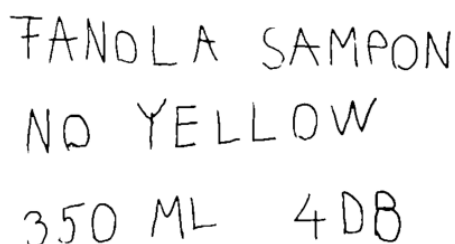 FANOLA SAMPON
NO YELLOW
350 ML 4DB